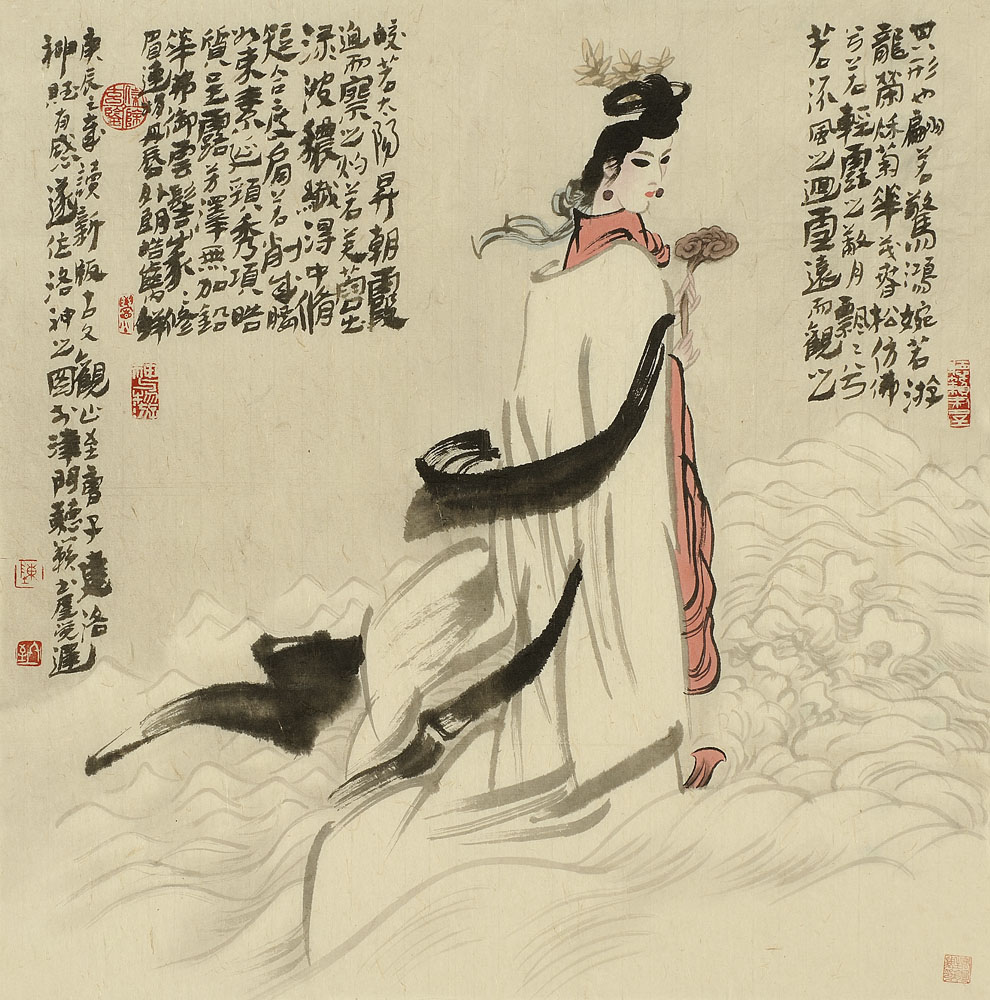 其形也翩若驚鴻婉若游
龍榮秌菊華茂春松仿佛
兮若輕雲之蔽月飄〻兮
若流風之迴雪遠而觀之
皎若太陽昇朝霞
迫而察之灼若芙蕖出
淥波穠纖得中脩
短合度肩若削成腰
如束素延頸秀項皓
質呈露芳澤無加鉛
華弗御雲髻峩〻修
眉連娟丹唇外朗皓齒鮮
庚辰之歲讀新版古文觀止至曹子建洛
神賦有感遂作洛神之圖於津門聽籟書屋